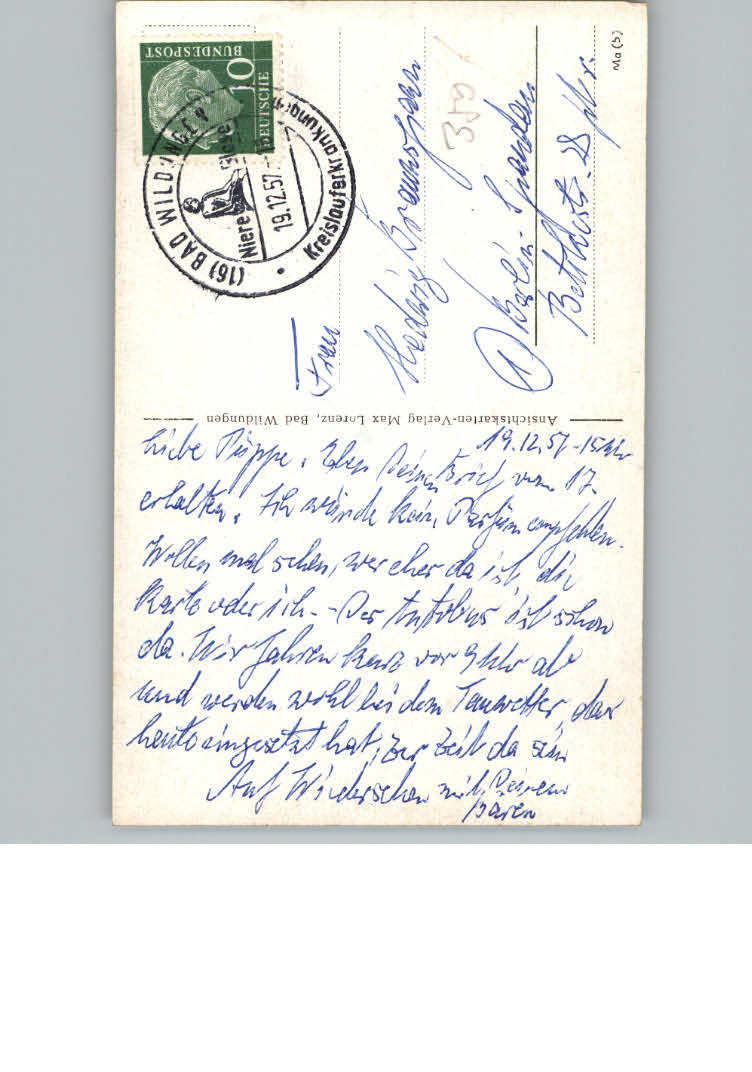 19.12.57 - 15 Uhr
Liebe Puppe, Eben Deinen Brief vom 17.
erhalten. Ich würde kein Parfüm empfehlen.
Wollen mal sehen, wer eher da ist, die
Karte oder ich. - Der Autobus ist schon
da. Wir fahren kurz vor 9 Uhr ab
und werden wohl bei dem Tauwetter, das
heute eingesetzt hat, zur Zeit da sein
Auf Wiedersehen mit Deinem
Bären
Ansichtskarten-Verlag Max Lorenz, Bad Wildungen
DEUTSCHE
BUNDESPOST
10
(16) BAD WILDUNGEN
Niere
19.12.57.
Kreislauferkrankung
Frau
Hedwig
① Berlin-Spandau
28 ptr.
359
Ma (5)